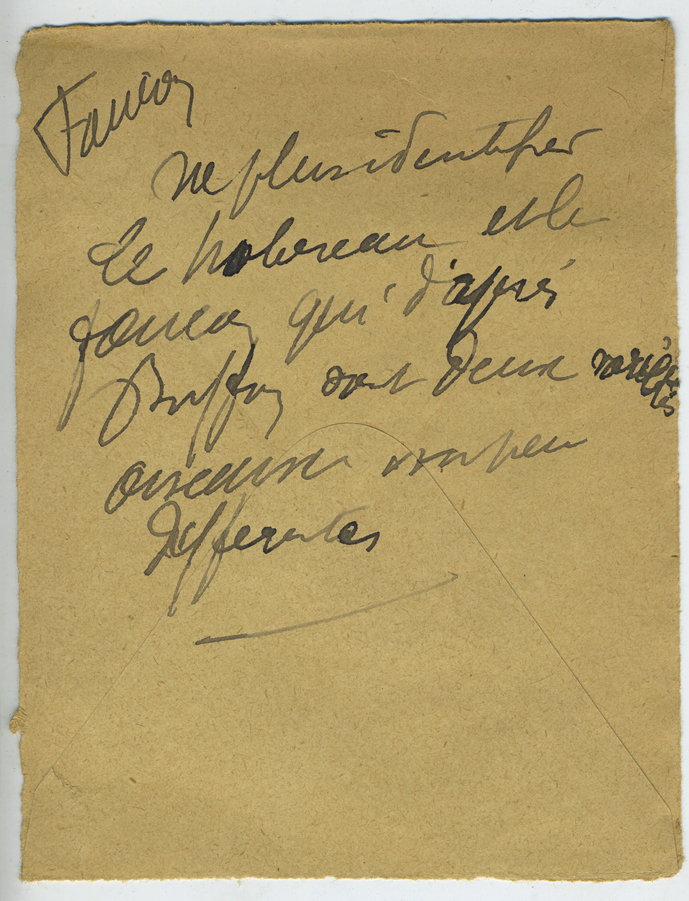 Faucon
Ne plus identifier
le hobereau et le
faucon qui d'après
Buffon sont deux variétés
oiseaux un peu
differentes